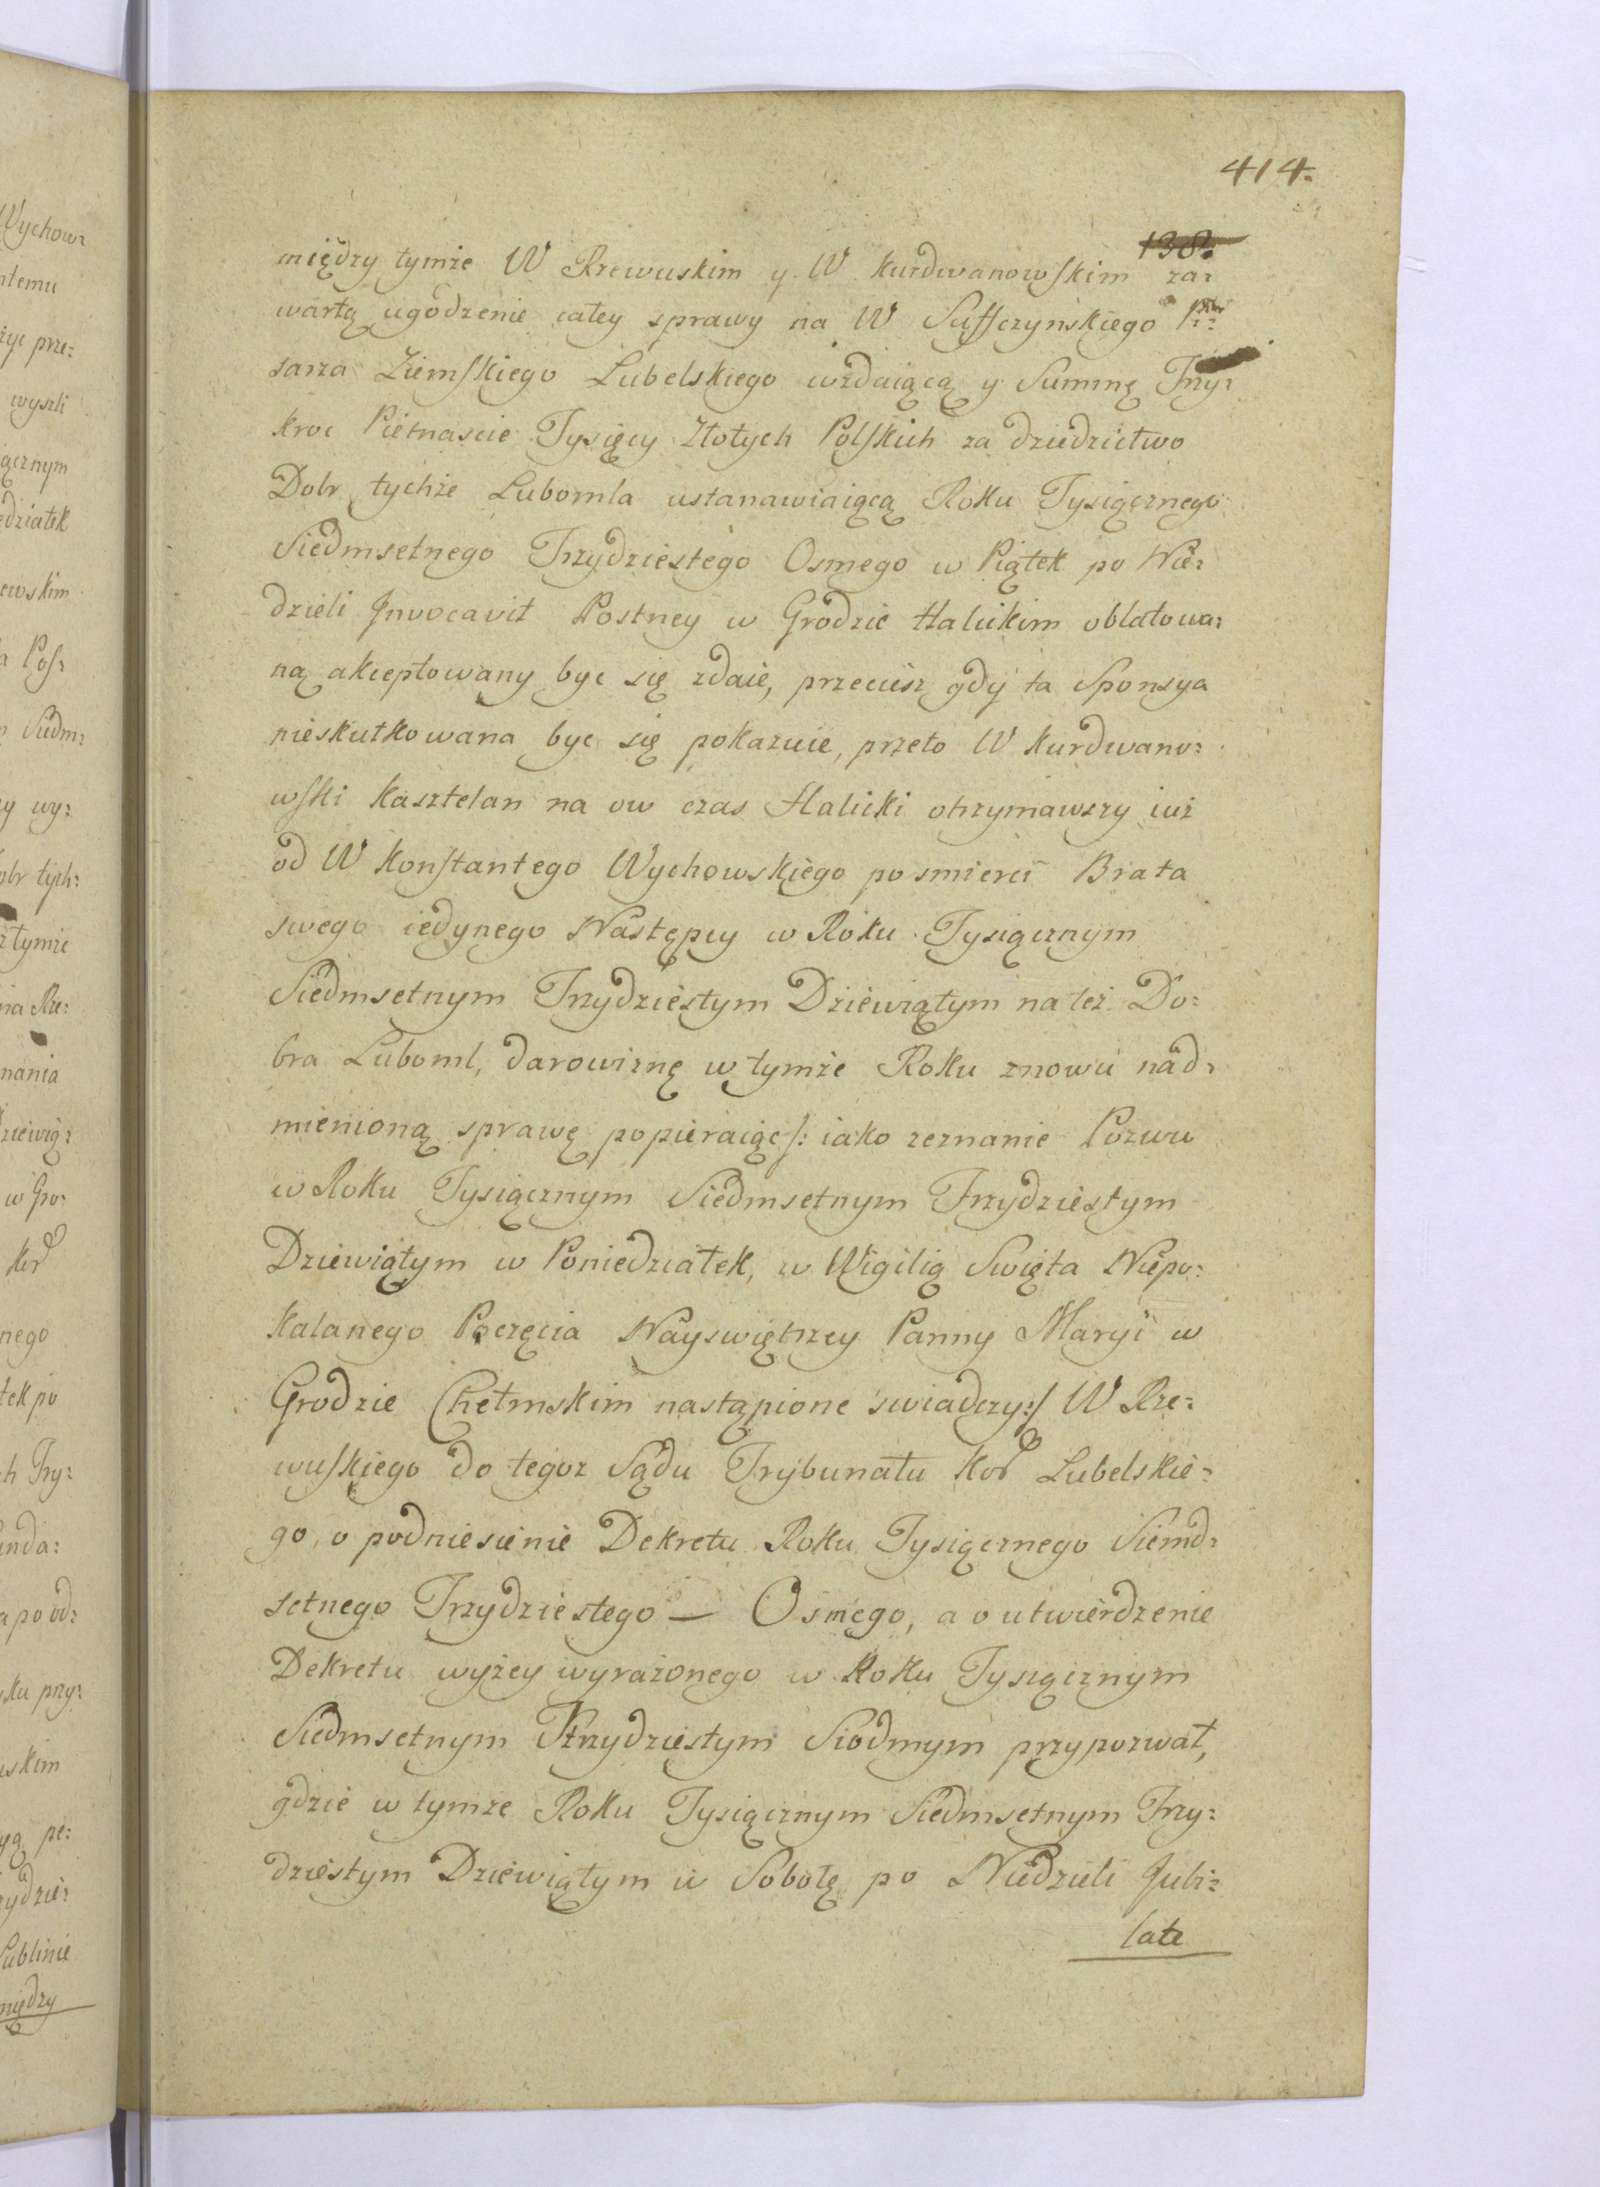 414.
138.
między tymże W Rzewuskim y W Kurdwanowskim za:
wartą ugodzenie całey sprawy na W Suffczyńskiego Pi:
sarza Ziemskiego Lubelskiego wzdaiącą y Summę Trzy:
kroc Piętnascie Tysięcy Złotych Polskich za dziedzictwo
Dobr tychże Lubomla ustanawiaiącą Roku Tysiącznego
Siedmsetnego Trzydziestego Osmego w Piątek po Nie:
dzieli Invocavit Postney w Grodzie Halickim oblatowa:
ną akceptowany byc się zdaie, przeciesz gdy ta Sponsya
nieskutkowana byc się pokazuie, przeto W Kurdwano:
wski Kasztelan na ow czas Halicki otrzymawszy iuż
od W Konstantego Wychowskiego po smierci Brata
swego iedynego Następcy w Roku Tysiącznym
Siedmsetnym Trzydziestym Dziewiątym na też Do:
bra Luboml, darowiznę w tymże Roku znowu nad:
mienioną sprawę popieraiąc /: iako zeznanie Pozwu
w Roku Tysiącznym Siedmsetnym Trzydziestym
Dziewiątym w Poniedziałek, w Wigilią Swięta Niepo:
kalanego Poczęcia Nayswiętszey Panny Maryi w
Grodzie Chełmskim nastąpione swiadczy :/ W Rze:
wuskiego do tegoz Sądu Trybunału Kor Lubelskie:
go, o podniesienie Dekretu Roku Tysiącznego Siemd:
setnego Trzydziestego — Osmego, a o utwierdzenie
Dekretu wyżey wyrażonego w Roku Tysiącznym
Siedmsetnym Trzydziestym Siodmym przypozwał,
gdzie w tymże Roku Tysiącznym Siedmsetnym Trzy:
dziestym Dziewiątym w Sobotę po Niedzieli Jubi:
late